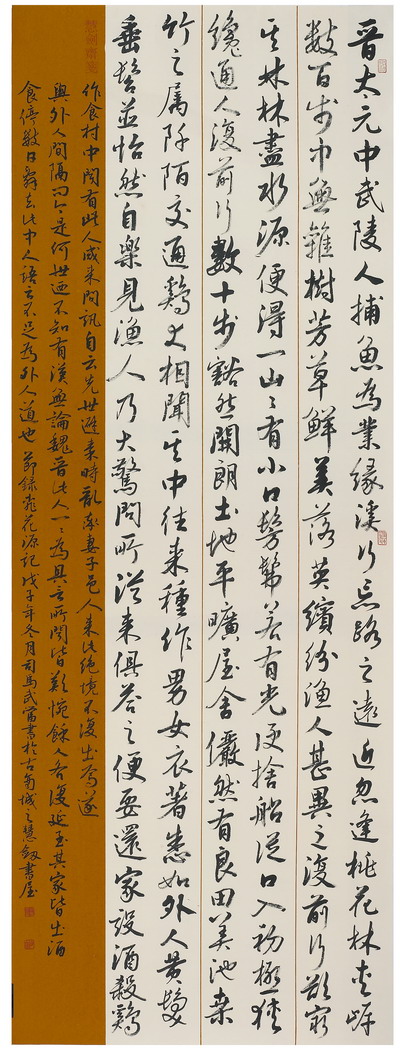 晉太元中武陵人捕魚為業緣溪行忘路之遠近忽逢桃花林夾岸
數百步中無雜樹芳草鮮美落英繽紛漁人甚異之復前行欲窮
其林林盡水源便得一山〻有小口髣髴若有光便捨船從口入初極狹
纔通人復前行數十步豁然開朗土地平曠屋舍儼然有良田美池桑
竹之屬阡陌交通鷄犬相聞其中往來種作男女衣著悉如外人黃髮
垂髫並怡然自樂見漁人乃大驚問所從來俱答之便要還家設酒殺鷄
作食村中聞有此人咸來問訊自云先世避秦時亂率妻子邑人來此絕境不復出焉遂
與外人間隔問今是何世迺不知有漢無論魏晉此人一〻為具言所聞皆歎惋餘人各復延至其家皆出酒
食停數日辭去此中人語云不足為外人道也 節錄桃花源記戊子年冬月司馬武當書於古城之慧劍書屋